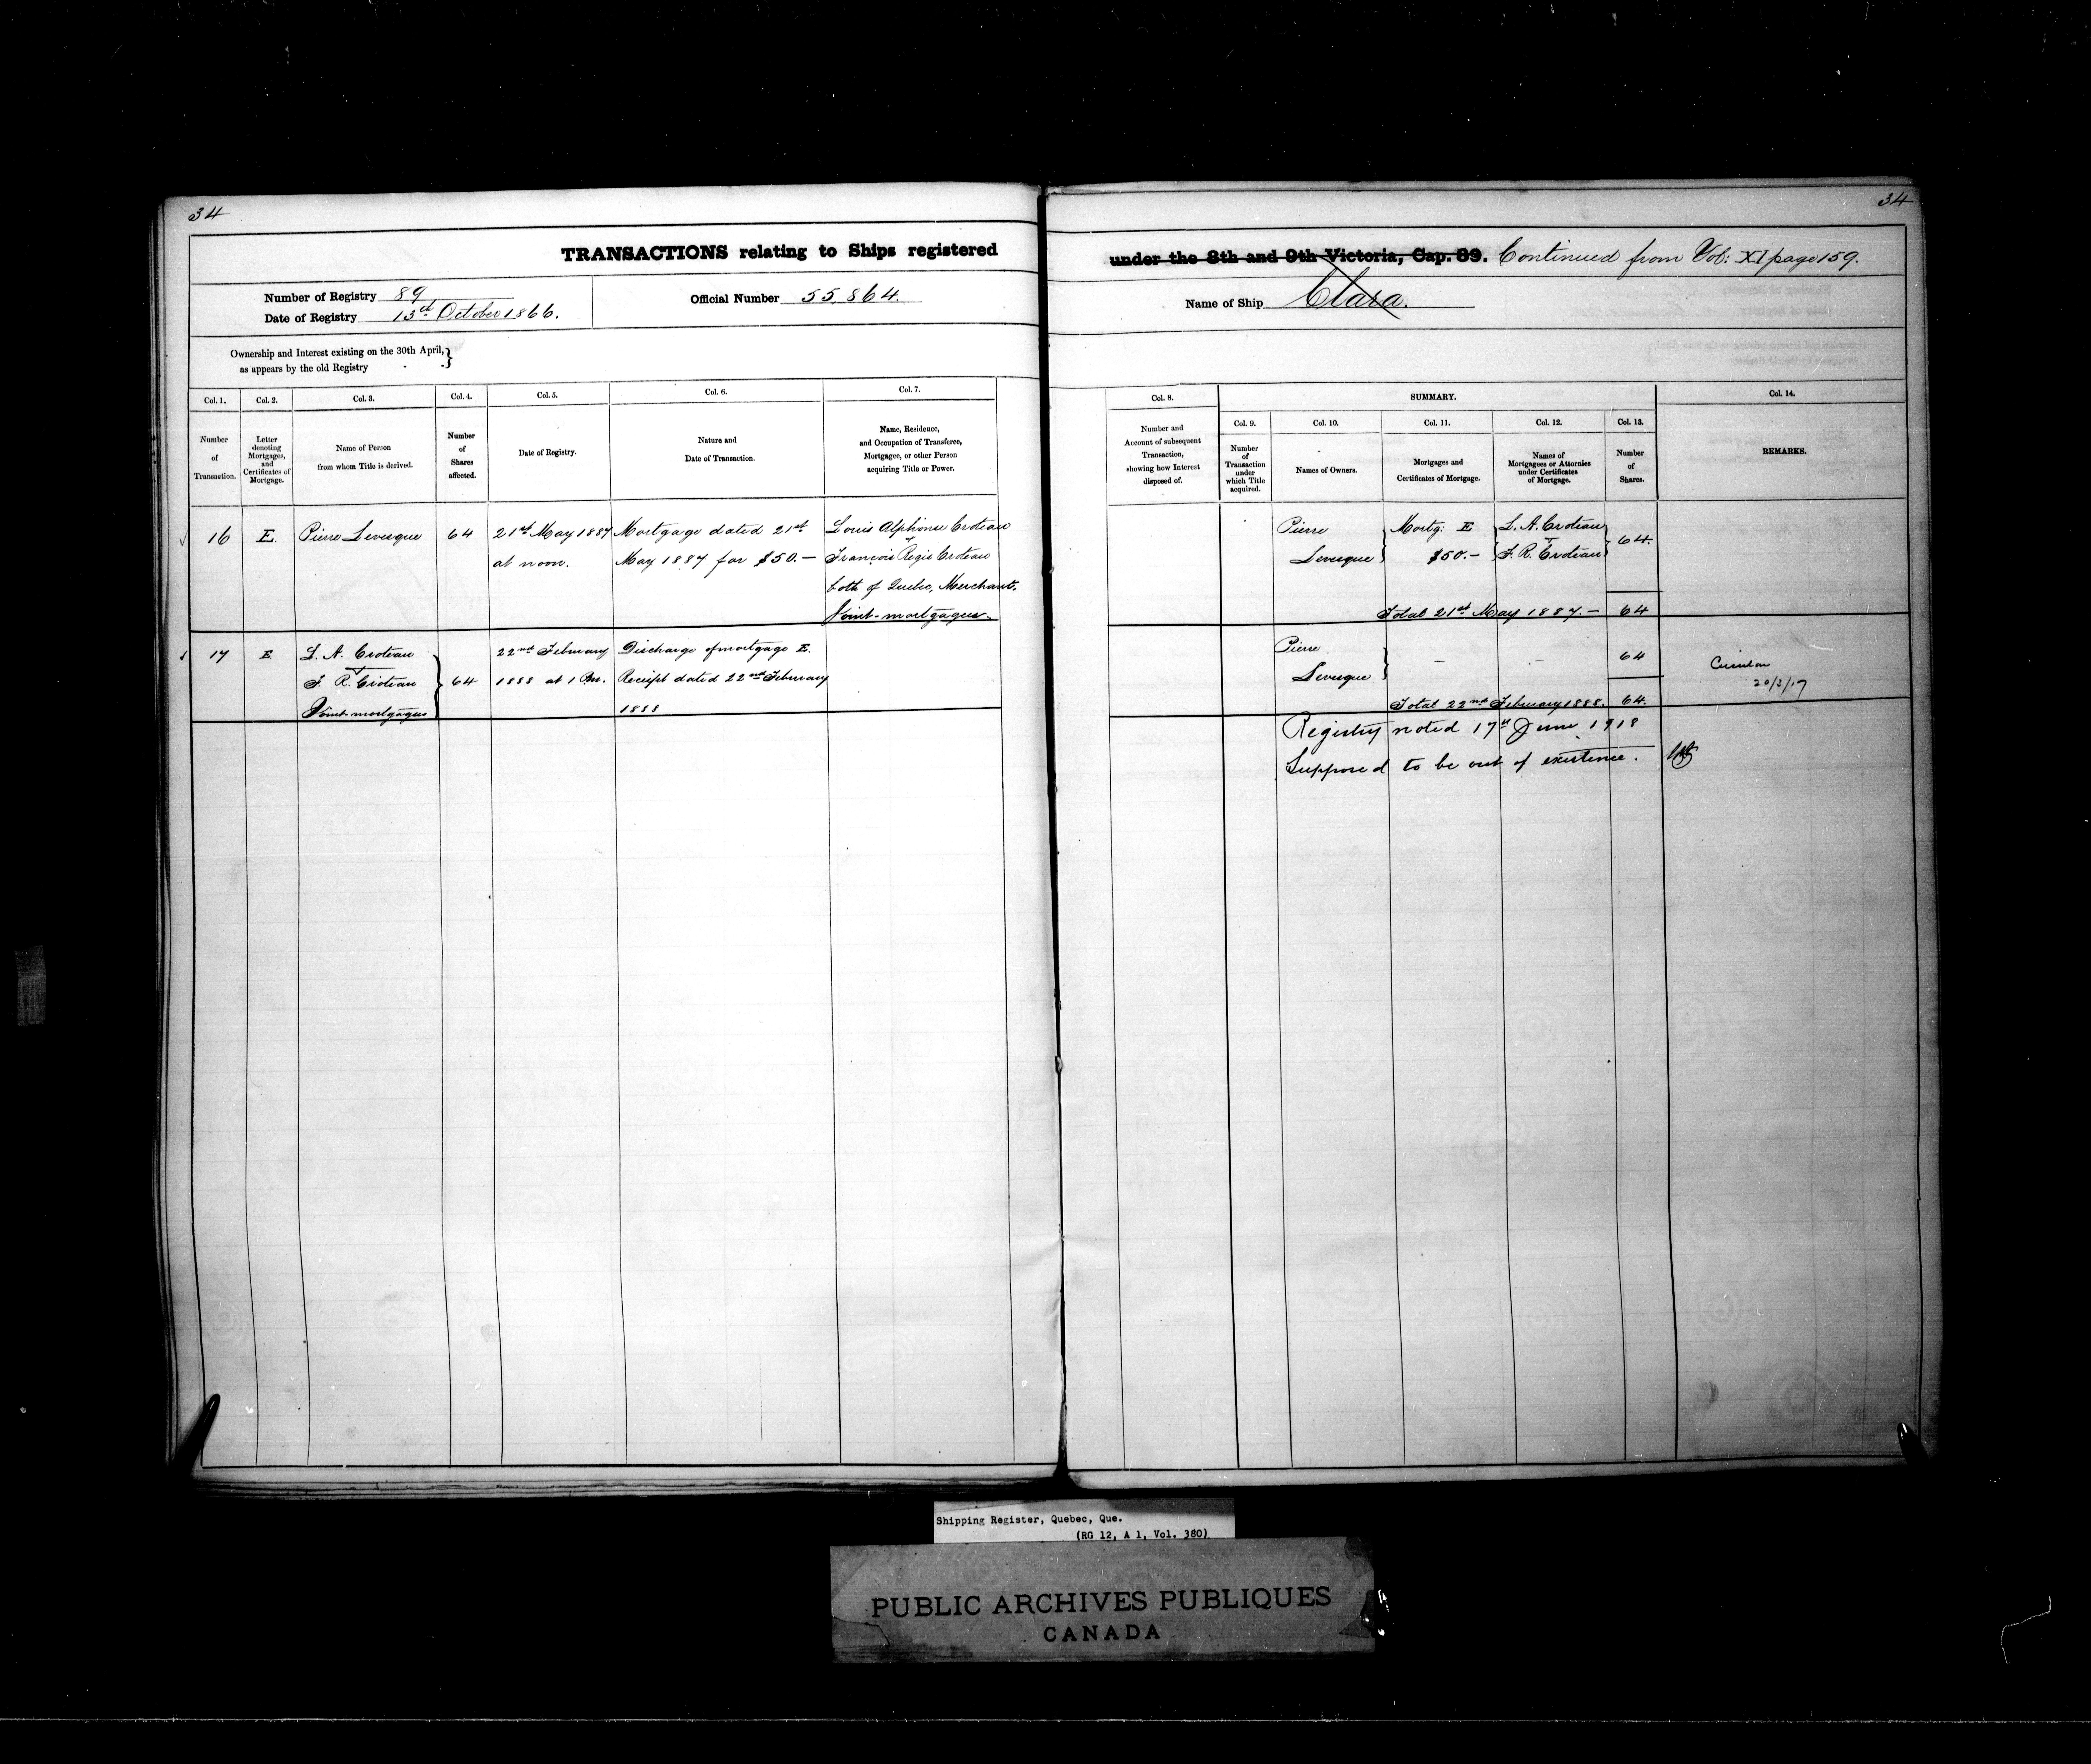 34
34
TRANSACTIONS relating to Ships registered
under the 8th and 9th Victoria, Cap. 89. Continued from Vol: XI page 159.
Number of Registry 89
Date of Registry 13th October 1866.
Official Number 55,864.
Name of Ship Clara.
Ownership and Interest existing on the 30th April,
as appears by the old Registry
Col. 1.
Number
of
Transaction.
Col. 2.
Letter
denoting
Mortgages,
and
Certificates of
Mortgage.
Col. 3.
Name of Person
from whom Title is derived.
Col. 4.
Number
of
Shares
affected.
Col. 5.
Date of Registry.
Col. 6.
Nature and
Date of Transaction.
Col. 7.
Name, Residence,
and Occupation of Transferee,
Mortgagee, or other Person
acquiring Title or Power.
Col. 8.
Number and
Account of subsequent
Transaction,
showing how Interest
disposed of.
SUMMARY.
Col. 9.
Number
of
Transaction
under
which Title
acquired.
Col. 10.
Names of Owners.
Col. 11.
Mortgages and
Certificates of Mortgage.
Col. 12.
Names of
Mortgagees or Attornies
under Certificates
of Mortgage.
Col. 13.
Number
of
Shares.
Col. 14.
REMARKS.
16
E.
Pierre Levesque
64
21st May 1887
at noon.
Mortgage dated 21st
May 1887 for $50.—
Louis Alphonse Croteau
François Regis Croteau
both of Quebec, Merchants.
Joint-mortgagees.
Pierre
Levesque
Mortg: E
$50.—
L. A. Croteau
F. R. Croteau
64.
Total 21st May 1887.— 64
17
E
L. A. Croteau
F. R. Croteau
Joint mortgagees
64
22nd February
1888 at 1 P.m.
Discharge of mortgage E.
Receipt dated 22nd February
1888
Pierre
Levesque
—
—
64
Total 22nd February 1888. 64.
20/3/17
Registry noted 17th June 1918
Supposed to be out of existence.
Shipping Register, Quebec, Que.
(RG 12, A 1, Vol. 380)
PUBLIC ARCHIVES PUBLIQUES
CANADA